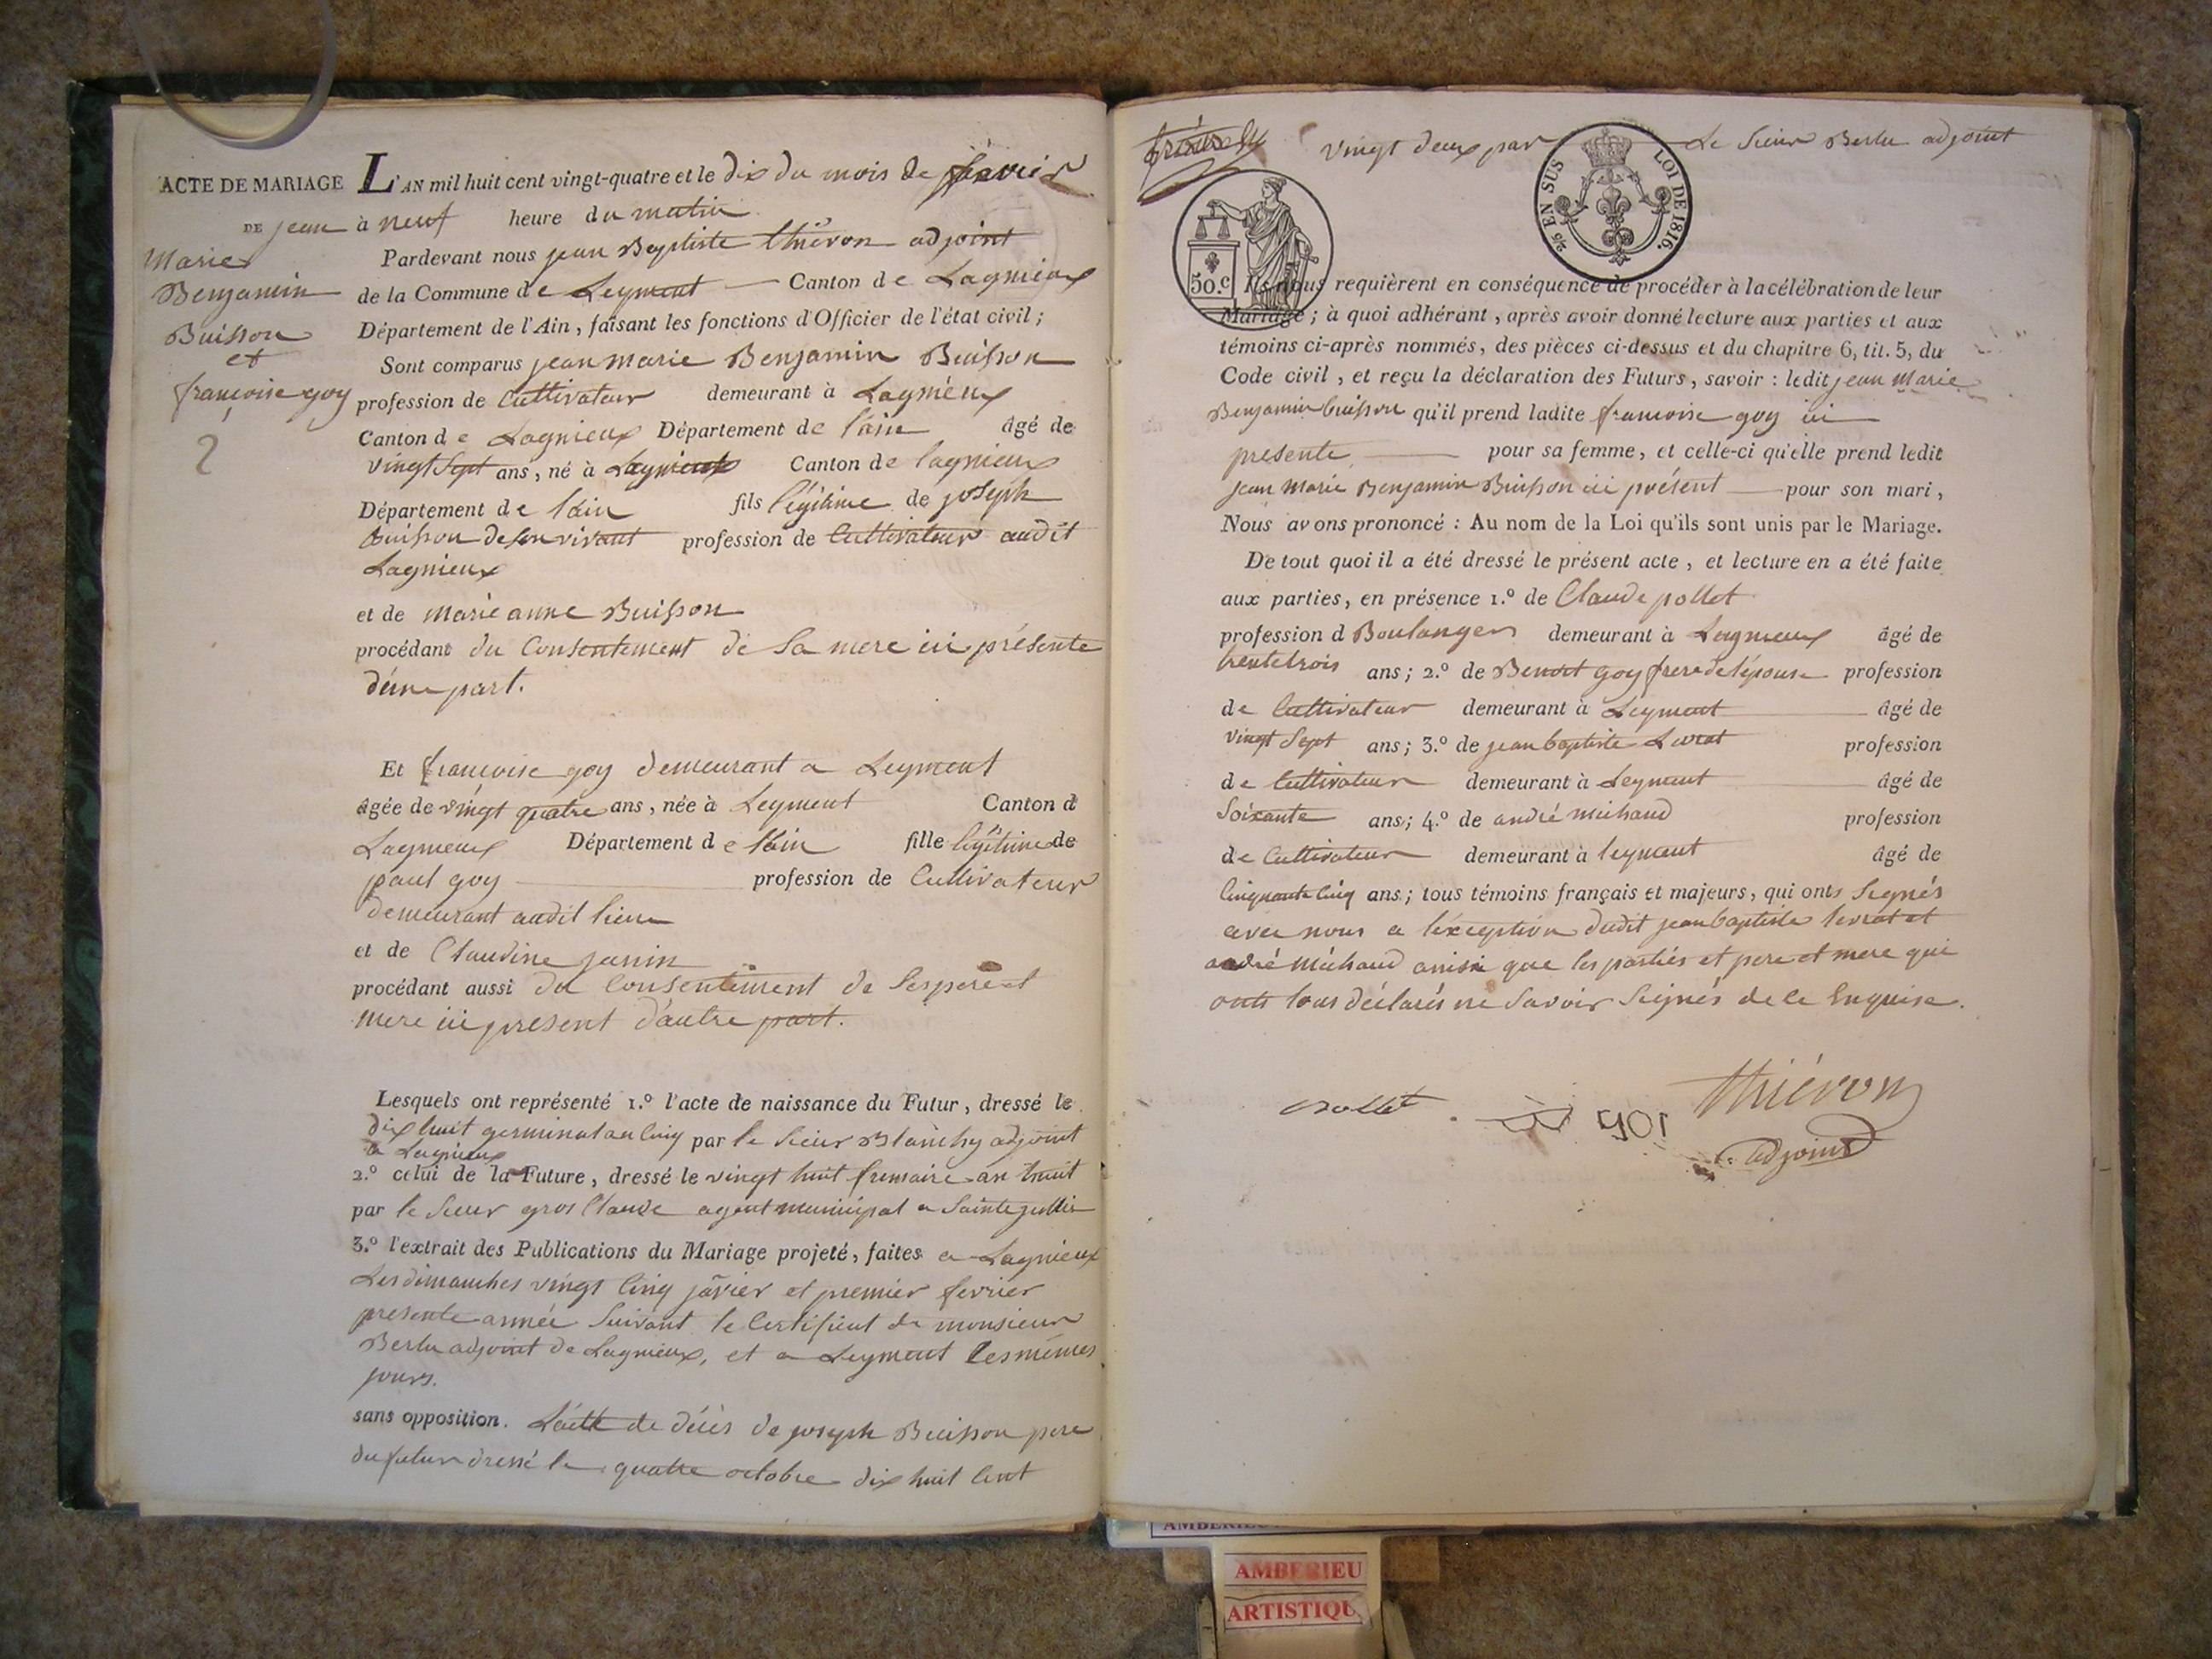 ACTE DE MARIAGE
DE jean
Marie
Benjamin
Buisson
et
françoise goy
2
L'AN mil huit cent vingt-quatre et le dix du mois de fevrier
à neuf heure du matin
Pardevant nous jean Baptiste thiévon adjoint
de la Commune de Leyment Canton de Lagnieux
Département de l'Ain, faisant les fonctions d'Officier de l'état civil;
Sont comparus jean marie Benjamin Buisson
profession de Cultivateur demeurant à Lagnieux
Canton de Lagnieux Département de l'ain âgé de
vingt Sept ans, né à Lagnieux Canton de lagnieux
Département de l'ain fils légitime de joseph
buisson de son vivant profession de Cultivateur audit
Lagnieux
et de marie anne Buisson
procédant du Consentement de Sa mere ici présente
d'une part.
Et françoise goy demeurant a Leyment
âgée de vingt quatre ans, née à Leyment Canton d
Lagnieux Département de l'ain fille légitime de
paul goy profession de Cultivateur
demeurant audit lieu
et de Claudine janin
procédant aussi du Consentement de Ses pere et
mere ici present d'autre part.
Lesquels ont représenté 1.º l'acte de naissance du Futur, dressé le
dix huit germinal an Cinq par le Sieur Blanchy adjoint
a Lagnieux
2.º celui de la Future, dressé le vingt huit frimaire an huit
par le Sieur gros Claude agent municipal a Sainte jullie
3.º l'extrait des Publications du Mariage projeté, faites a Lagnieux
Les dimanches vingt Cinq javier et premier fevrier
presente année Suivant le Certificat de monsieur
Berlu adjoint de Lagnieux, et a Leyment Les mêmes
jours.
sans opposition. L'acte de décès de joseph Buisson pere
du futur dressé le quatre octobre dix huit Cent
vingt deux par Le Sieur Berlu adjoint
2/10 EN SUS LOI DE 1816.
50.c
Ils nous requièrent en conséquence de procéder à la célébration de leur
Mariage; à quoi adhérant, après avoir donné lecture aux parties et aux
témoins ci-après nommés, des pièces ci-dessus et du chapitre 6, tit. 5, du
Code civil, et reçu la déclaration des Futurs, savoir: ledit jean Marie
Benjamin buisson qu'il prend ladite françoise goy ici
presente pour sa femme, et celle-ci qu'elle prend ledit
jean Marie Benjamin Buisson ici présent pour son mari,
Nous avons prononcé: Au nom de la Loi qu'ils sont unis par le Mariage.
De tout quoi il a été dressé le présent acte, et lecture en a été faite
aux parties, en présence 1.º de Claude pollet
profession d Boulanger demeurant à Lagnieux âgé de
trente trois ans; 2.º de Benoit goy frere de l'épouse profession
de Cultivateur demeurant à Leyment âgé de
vingt Sept ans; 3.º de jean baptiste Levrat profession
de Cultivateur demeurant à Leyment âgé de
Soixante ans; 4.º de andré michaud profession
de Cultivateur demeurant à leyment âgé de
Cinquante Cinq ans; tous témoins français et majeurs, qui onts Signés
avec nous a l'éxception dudit jean baptiste levrat et
andré Michaud ainsi que les partiés et pere et mere qui
onts tous déclarés ne Savoir Seignés de Ce Enquise.
pollet
Thiévon
adjoint
AMBERIEU
ARTISTIQU